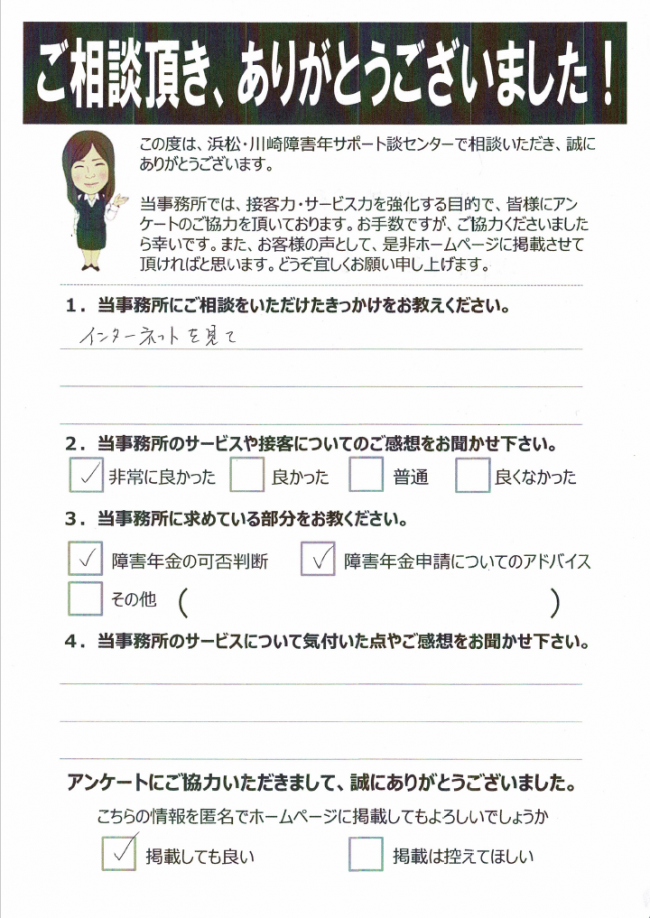 ご相談頂き、ありがとうございました！
この度は、浜松・川崎障害年サポート談センターで相談いただき、誠に
ありがとうございます。
当事務所では、接客力・サービス力を強化する目的で、皆様にアン
ケートのご協力を頂いております。お手数ですが、ご協力くださいました
ら幸いです。また、お客様の声として、是非ホームページに掲載させて
頂ければと思います。どうぞ宜しくお願い申し上げます。
1．当事務所にご相談をいただけたきっかけをお教えください。
インターネットを見て
2．当事務所のサービスや接客についてのご感想をお聞かせ下さい。
✓ 非常に良かった 良かった 普通 良くなかった
3．当事務所に求めている部分をお教ください。
✓ 障害年金の可否判断 ✓ 障害年金申請についてのアドバイス
その他 （ ）
4．当事務所のサービスについて気付いた点やご感想をお聞かせ下さい。
アンケートにご協力いただきまして、誠にありがとうございました。
こちらの情報を匿名でホームページに掲載してもよろしいでしょうか
✓ 掲載しても良い 掲載は控えてほしい